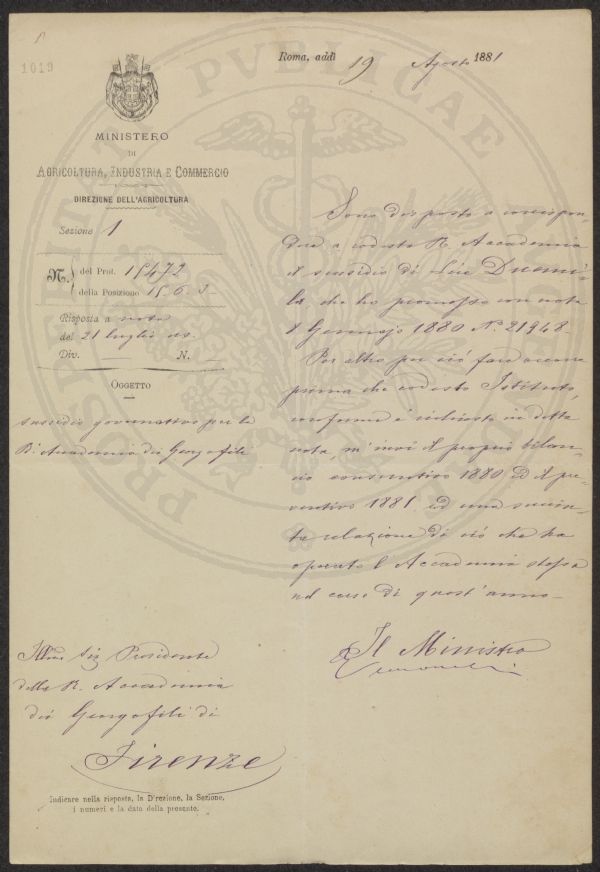 1019
Roma, addì 19 Agosto 1881
MINISTERO
DI
AGRICOLTURA, INDUSTRIA E COMMERCIO
DIREZIONE DELL'AGRICOLTURA
Sezione 1
N. del Prot. 15472
della Posizione 15.6.3
Risposta a nota
del 21 luglio us.
Div. — N. —
OGGETTO
sussidio governativo per la
R. Accademia dei Georgofili
Sono disposto a corrispon-
dere a codesta R. Accademia
il sussidio di Lire Duemi-
la, che ho promesso con nota
Gennajo 1880 N. 21948.
Per altro per ciò fare occorre
prima che codesto Istituto,
conforme è richiesto in detta
nota, m'invii il proprio bilan-
cio consuntivo 1880 ed il pre-
ventivo 1881 ed una succin-
ta relazione di ciò che ha
operato l'Accademia stessa
nel corso di quest'anno.
Il Ministro
Illmo Sig Presidente
della R. Accademia
dei Georgofili di
Firenze
Indicare nella risposta, la Direzione, la Sezione,
i numeri e la data della presente.
PROSPERITATI PVBLICAE